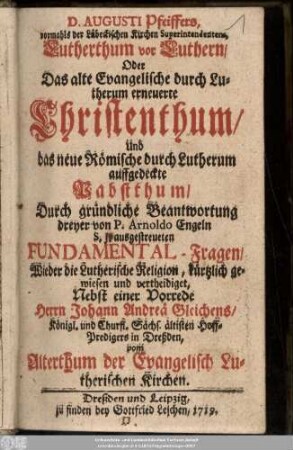 D. AUGUSTI Pfeiffers,
vormahls der Lübeckischen Kirchen Superintendentens,
Lutherthum vor Luthern/
Oder
Das alte Evangelische durch Lu-
therum erneuerte
Christenthum/
Und
das neue Römische durch Lutherum
auffgedeckte
Pabstthum/
Durch gründliche Beantwortung
dreyer von P. Arnoldo Engeln
S. J. ausgestreueten
FUNDAMENTAL-Fragen/
Wieder die Lutherische Religion, kürtzlich ge-
wiesen und vertheidiget,
Nebst einer Vorrede
Herrn Johann Andreä Gleichens/
Königl. und Churfl. Sächs. ältisten Hoff-
Predigers in Dreßden,
vom
Alterthum der Evangelisch Lu-
therischen Kirchen.
Dresden und Leipzig,
zu finden bey Gottfried Leschen, 1719.